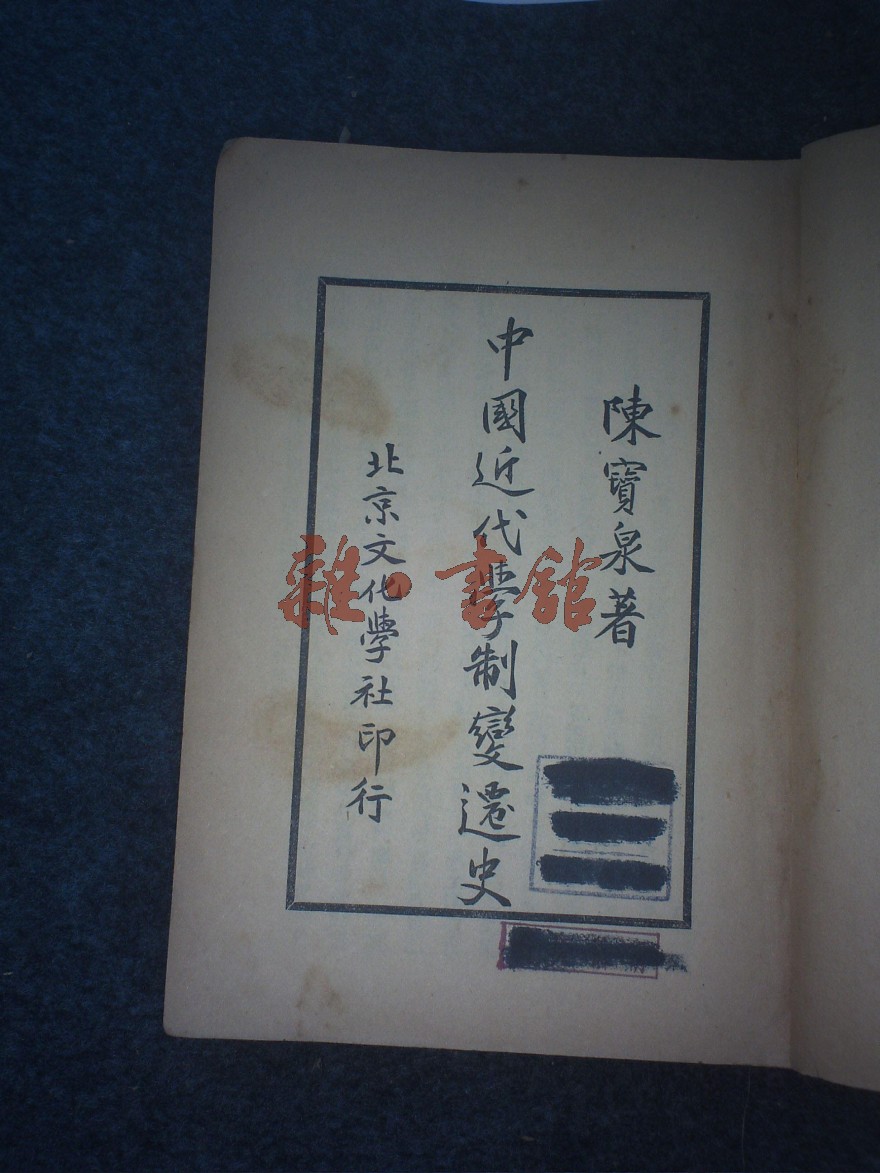 陳寶泉著
中國近代學制變遷史
北京文化學社印行
雜·書館